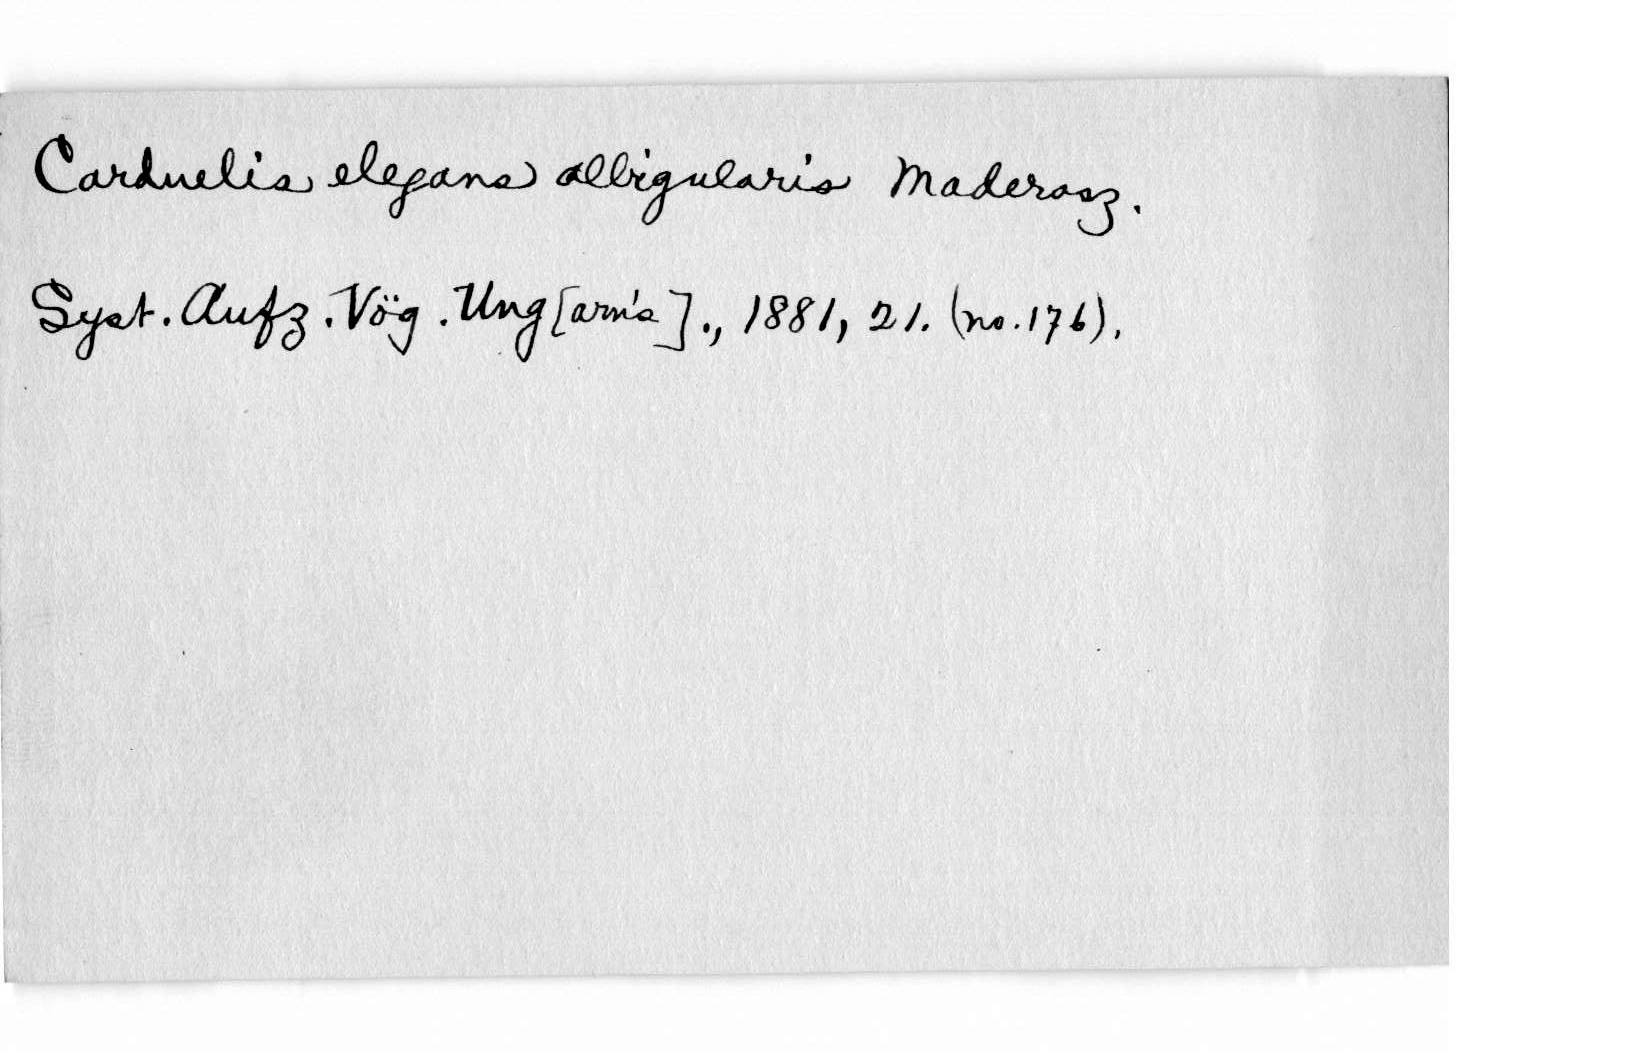 Carduelis elegans albigularis Maderasz.
Syst. Aufz. Vög. Ung[arn's]., 1881, 21. (no. 176).